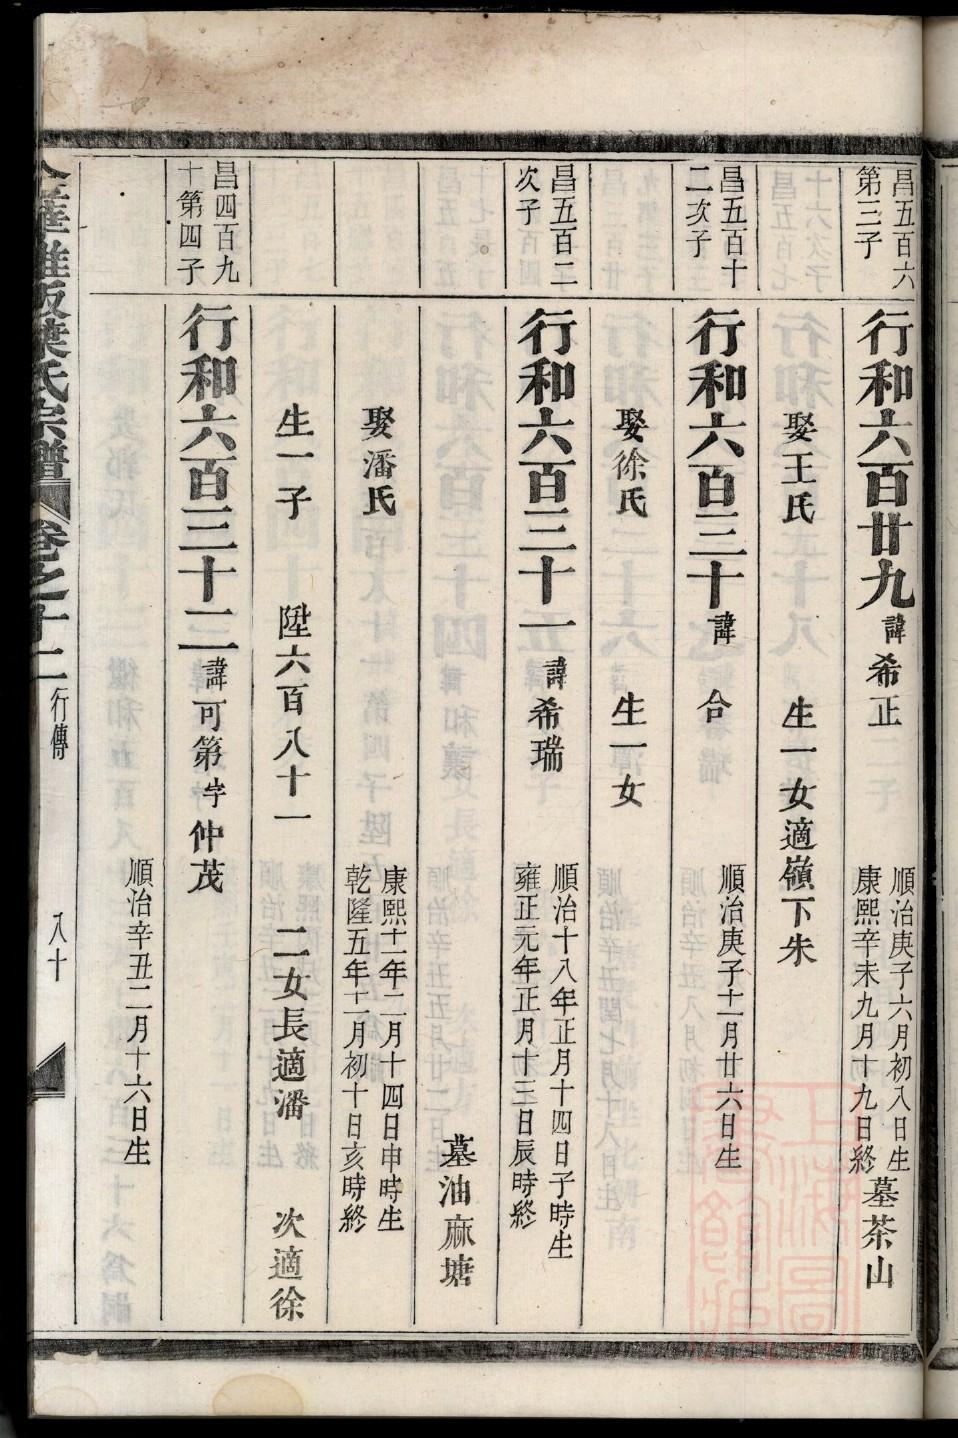 昌五百六
第三子
行和六百廿九 諱希正
順治庚子六月初八日生
康熙辛未九月十九日終
墓茶山
娶王氏 生一女適嶺下朱
昌五百十
二次子
行和六百三十 諱合
順治庚子十一月廿六日生
娶徐氏 生一女
昌五百二
次子
行和六百三十一 諱希瑞
順治十八年正月十四日子時生
雍正元年正月十三日辰時終
墓油麻塘
娶潘氏
康熙十一年二月十四日申時生
乾隆五年十一月初十日亥時終
生一子 陞六百八十一 二女長適潘 次適徐
昌四百九
十第四子
行和六百三十二 諱可第字仲茂
順治辛丑二月十六日生
葉氏宗譜 卷之十二 行傳 八十